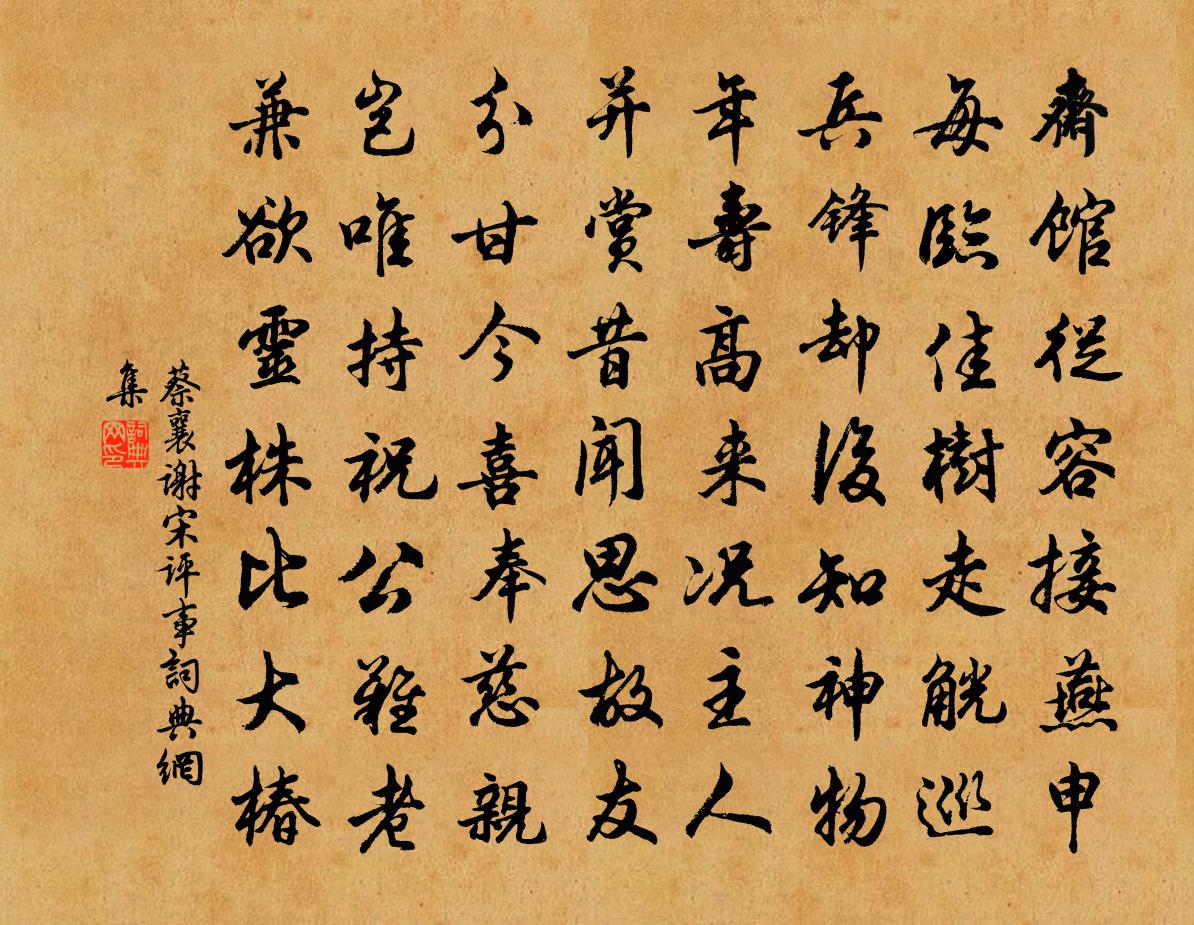 齋館從容接燕申
每臨佳樹走觥巡
兵鋒却後知神物
年壽高来况主人
并賞昔聞思故友
分甘今喜奉慈親
豈唯持祝公難老
兼欲靈株比大椿
蔡襄谢宋评事詞典網
集
詞典
网印